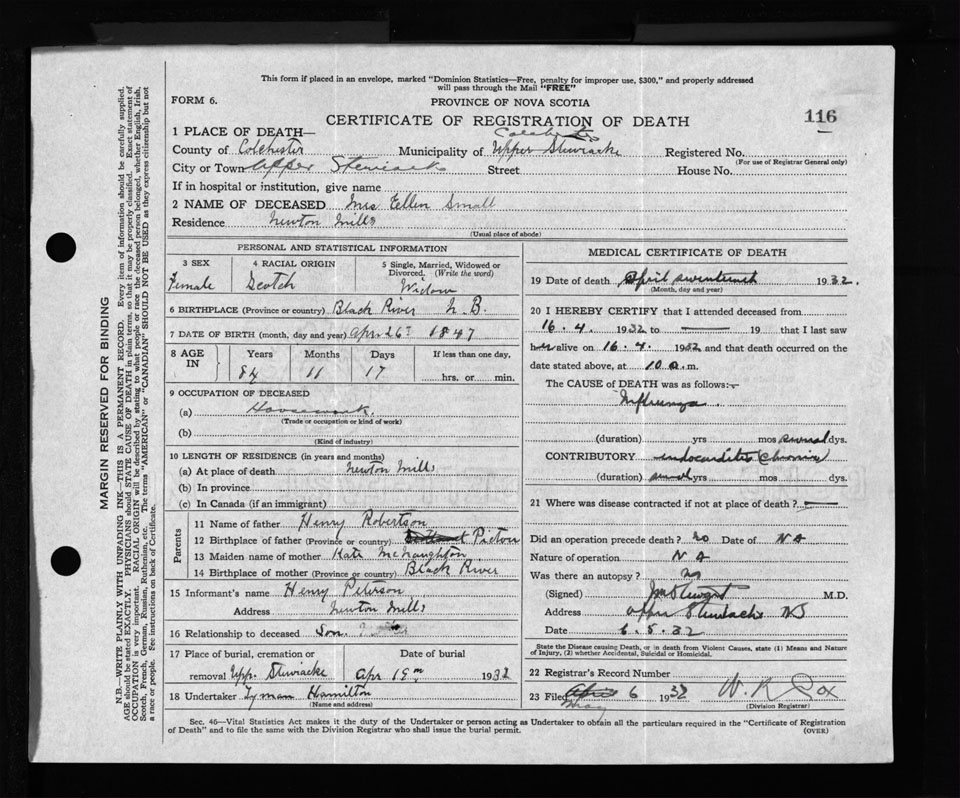 This form if placed in an envelope, marked "Dominion Statistics—Free, penalty for improper use, $300," and properly addressed
will pass through the Mail "FREE"
FORM 6.
PROVINCE OF NOVA SCOTIA
CERTIFICATE OF REGISTRATION OF DEATH
116
1 PLACE OF DEATH—
County of Colchester Municipality of Upper Stewiacke Registered No.
(For use of Registrar General only)
City or Town Upper Stewiacke Street House No.
If in hospital or institution, give name
2 NAME OF DECEASED Mrs Ellen Small
Residence Newton Mills
(Usual place of abode)
PERSONAL AND STATISTICAL INFORMATION
3 SEX 4 RACIAL ORIGIN 5 Single, Married, Widowed or Divorced. (Write the word)
Female Scotch Widow
6 BIRTHPLACE (Province or country) Black River N. B.
7 DATE OF BIRTH (month, day and year) Apr 26 1847
8 AGE IN Years Months Days If less than one day,
84 11 17 hrs. or min.
9 OCCUPATION OF DECEASED
(a) Housework
(Trade or occupation or kind of work)
(b)
(Kind of industry)
10 LENGTH OF RESIDENCE (in years and months)
(a) At place of death Newton Mills
(b) In province
(c) In Canada (if an immigrant)
Parents
11 Name of father Henry Robertson
12 Birthplace of father (Province or country) Pictou
13 Maiden name of mother Kate McNaughton
14 Birthplace of mother (Province or country) Black River
15 Informant's name Henry Peterson
Address Newton Mills
16 Relationship to deceased Son
17 Place of burial, cremation or Date of burial
removal Upp. Stewiacke Apr 19 1932
18 Undertaker Lyman Hamilton
(Name and address)
MEDICAL CERTIFICATE OF DEATH
19 Date of death April seventeenth 1932.
(Month, day and year)
20 I HEREBY CERTIFY that I attended deceased from
16. 4. 1932 to — 19 that I last saw
her alive on 16. 4. 1932 and that death occurred on the
date stated above, at 10 a. m.
The CAUSE of DEATH was as follows:—
Influenza
(duration) yrs mos several dys.
CONTRIBUTORY endocarditis (chronic)
(duration) yrs mos dys.
21 Where was disease contracted if not at place of death? —
Did an operation precede death? no Date of NA
Nature of operation NA
Was there an autopsy? no
(Signed) M.D.
Address Upper Stewiacke NS
Date 6. 5. 32
State the Disease causing Death, or in death from Violent Causes, state (1) Means and Nature
of Injury, (2) whether Accidental, Suicidal or Homicidal.
22 Registrar's Record Number
23 Filed May 6 1932 W. R. Cox
(Division Registrar)
Sec. 46—Vital Statistics Act makes it the duty of the Undertaker or person acting as Undertaker to obtain all the particulars required in the "Certificate of Registration
of Death" and to file the same with the Division Registrar who shall issue the burial permit.
(OVER)
MARGIN RESERVED FOR BINDING
N.B.—WRITE PLAINLY WITH UNFADING INK—THIS IS A PERMANENT RECORD. Every item of information should be carefully supplied.
AGE should be stated EXACTLY. PHYSICIANS should STATE CAUSE OF DEATH in plain terms, so that it may be properly classified. Exact statement of
OCCUPATION is very important. RACIAL ORIGIN will be described by stating to what people or race the deceased person belonged, whether English, Irish,
Scotch, French, German, Russian, Ruthenian, etc. The terms "AMERICAN" or "CANADIAN" SHOULD NOT BE USED as they express citizenship but not
a race or people. See instructions on back of Certificate.